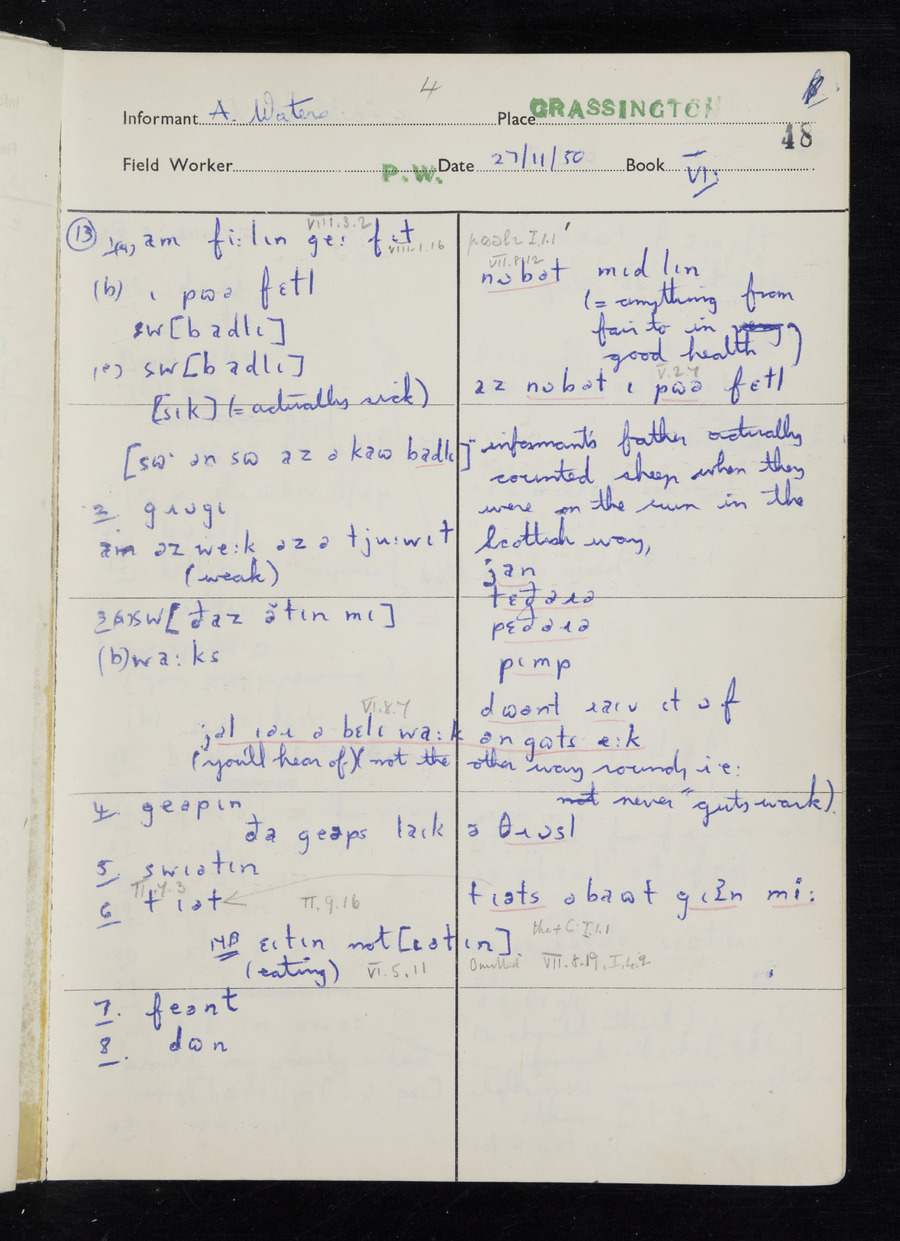 4
Informant A. Waters Place GRASSINGTON
48
Field Worker P.W. Date 27/11/50 Book VI
13
VIII.3.2
1(a) am fi:lɪn ge: fɛt
VIII.1.16
(b) ɩ pʊə fɛtl
sw[badlɪ]
(c) sw[badlɪ]
[sɪk] (= actually sick)
[sʊ· ən sʊ əz ə kaʊ badlɪ]
2. gɹʊgɪ
am əz we:k əz ə tju:wɪt
(weak)
3(a) sw[ðaz ɛtɪn mɪ]
(b) wa:ks
VI.8.7
jəl ɪəɹ ə bɛlɪ wa:k ən gʊts ɛ:k
(you'll hear of) (not the other way round, i.e:
not never "guts wark").
4. geəpɪn
ðə geəps laɪk ə θɹʊsl
5. swɪətɪn
II.7.3
6 tɪət II.9.16
NB ɛɪtɪn not [ɪətɪn].
(eating) VI.5.11
7. feənt
8. dʊn
I.1.1
VII.8.12
nʊbət mɪdlɪn
(= anything from
fair to in
good health)
V.2.7
əz nʊbət ɩ pʊə fɛtl
informant's father actually
counted sheep when they
were on the run in the
Scottish way,
jan
tɛðəɹə
pɛðəɹə
pɪmp
dʊənt ɪt ɒf
tɪəts əbaʊt mi:
I.1.1
Omitted VII.8.19, I.4.9